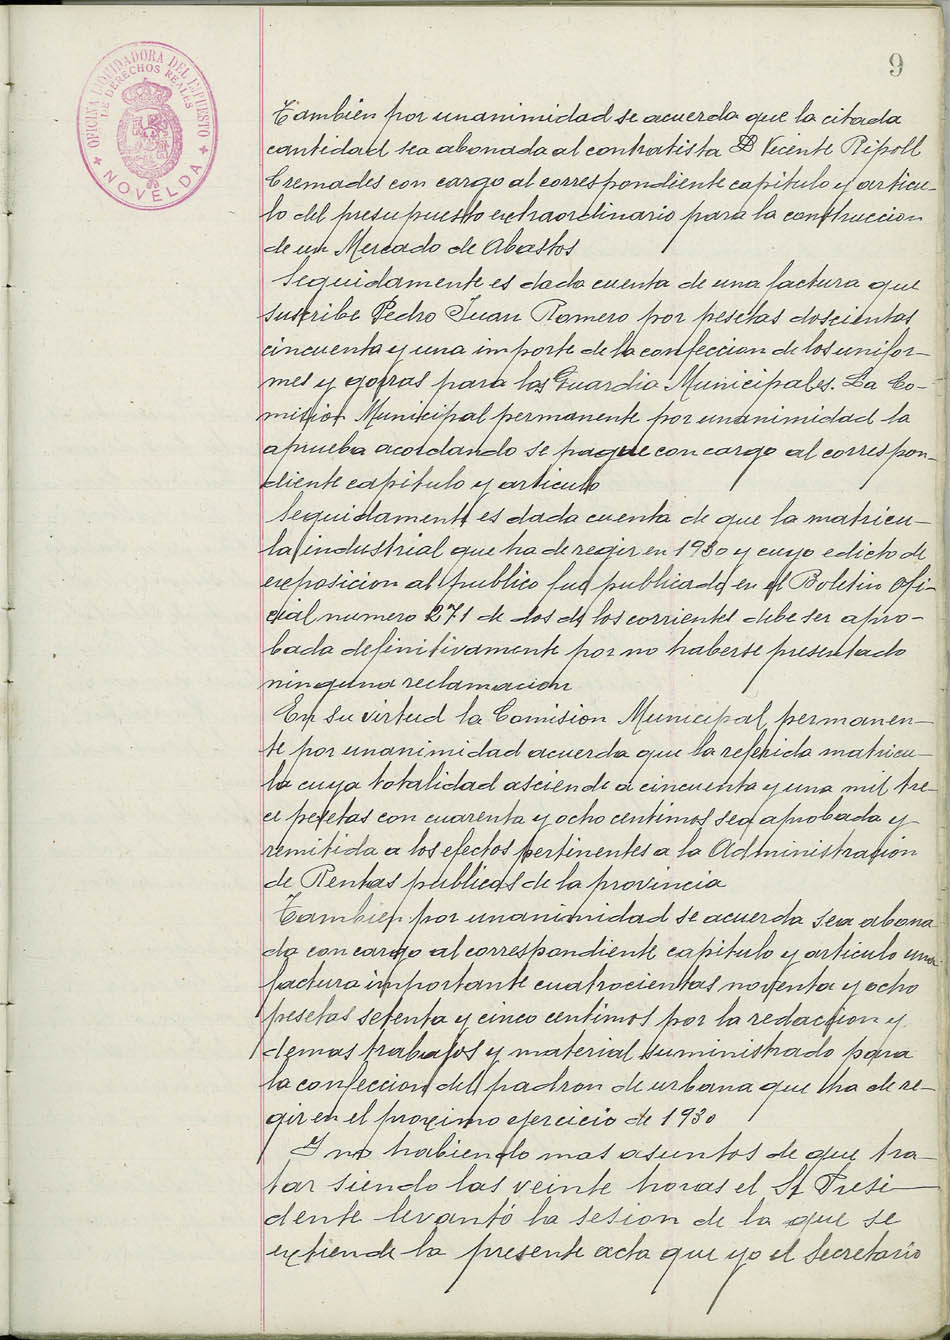 9
OFICINA LIQUIDADORA DEL IMPUESTO
DE DERECHOS REALES
NOVELDA
Tambien por unanimidad se acuerda que la citada
cantidad sea abonada al contratista D Vicente Ripoll
Cremades con cargo al correspondiente capitulo y articu-
lo del presupuesto extraordinario para la construccion
de un Mercado de Abastos
Seguidamente es dada cuenta de una factura que
suscribe Pedro Juan Romero por pesetas doscientas
cincuenta y una importe de la confeccion de los unifor-
mes y gorras para los Guardia Municipales. La Co-
mision Municipal permanente por unanimidad la
aprueba acordando se pague con cargo al correspon-
diente capitulo y articulo
Seguidamente es dada cuenta de que la matricu-
la industrial que ha de regir en 1930 y cuyo edicto de
exposicion al publico fue publicado en el Boletin Ofi-
cial numero 271 de dos de los corrientes debe ser apro-
bada definitivamente por no haberse presentado
ninguna reclamacion
En su virtud la Comision Municipal permanen-
te por unanimidad acuerda que la referida matricu-
la cuya totalidad asciende a cincuenta y una mil tre-
ce pesetas con cuarenta y ocho centimos sea aprobada y
remitida a los efectos pertinentes a la Administracion
de Rentas publicas de la provincia
Tambien por unanimidad se acuerda sea abona
da con cargo al correspondiente capitulo y articulo una
factura importante cuatrocientas noventa y ocho
pesetas setenta y cinco centimos por la redaccion y
demas trabajos y material suministrado para
la confeccion del padron de urbana que ha de re-
gir en el proximo ejercicio de 1930
Y no habiendo mas asuntos de que tra-
tar siendo las veinte horas el Sr Presi-
dente levantó la sesion de la que se
extiende la presente acta que yo el Secretario